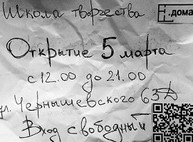 Школа творчества
.дома
Открытие 5 марта
с 12.00 до 21.00
ул. Чернышевского 63
Вход свободный